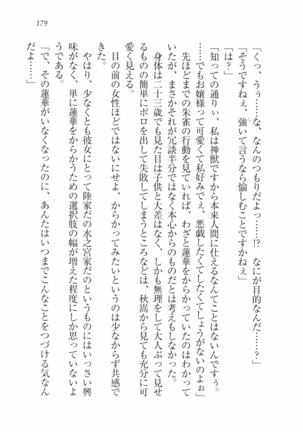 179
「くっ、うぅ……な、なんのつもりだよ……!?　なにが目的なんだ……？」
「そうですねぇ、強いて言うなら愉しむことですかねぇ」
「は？」
「知っての通りぃ、私は神獣ですから本来人間に仕えるなんてことはないんですぅ。
……でもお嬢様って可愛くて私好みでぇ、悪戯したくてしたくてしょうがないのよぉ」
先ほどまでの朱雀の行動を見ていれば、わざと蓮華をからかっていたのはわかって
いたが、まさかそれが冗談半分ではなく本心からのものだとは考えもしなかった。
身体は二十三歳でも見た目は子供と大差はなく、しかも無理をして大人ぶって見せ
るものの簡単にボロを出して失敗してしまうところなどは、秋嵩から見ても充分に可
愛く見える。
目の前の女性ほどではないにせよ、からかってみたいというのは少なからず共感で
きた。
やはり、少なくとも彼女にとって陸家だの水之宮家だのというものにはいっさい興
味がなく、単に蓮華をからかうための選択肢の幅が増えた程度にしか思っていないよ
うである。
「で、その蓮華がいなくなったのに、あんたはいつまでこんなことをつづける気なん
だよ……」